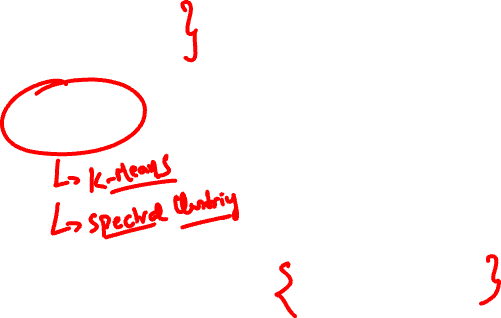 }
↳ K-Means
↳ Spectral Clustering
{ }